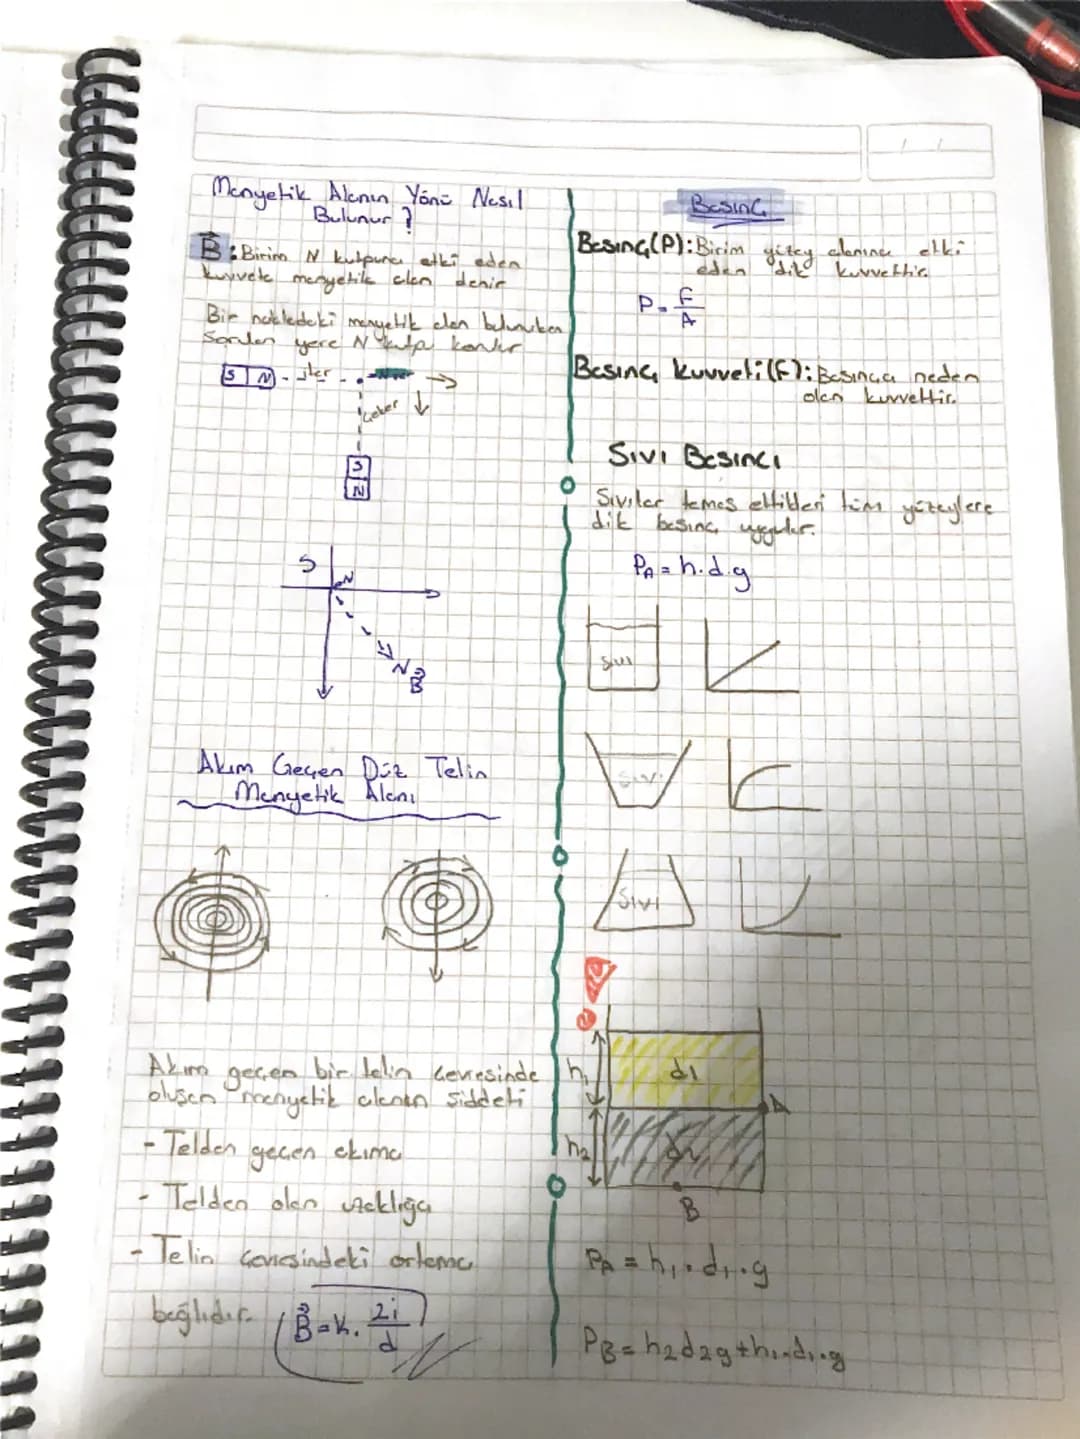 Manyetik Alanın Yönü Nasıl
Bulunur ?
B : Birim N kutpuna etki eden
kuvvete manyetik alan denir
Bir noktadaki manyetik alan bulunurken
Sorulan yere N kutp konur
S N iter
çeker
S
N
S
N
N B
Akım Geçen Düz Telin
Manyetik Alanı
Akım geçen bir telin çevresinde
oluşan manyetik alanın şiddeti
- Telden geçen akıma
- Telden olan uzaklığa
- Telin çevresindeki ortama
bağlıdır.
B = k. 2i/d
Basınç
Basınç(P): Birim yüzey alanına etki
eden dik kuvvettir.
P = F/A
Basınç kuvveti(F): Basınca neden
olan kuvvettir.
Sıvı Basıncı
Sıvılar temas ettikleri tüm yüzeylere
dik basınç uygular.
PA = h.d.g
Sıvı
Sıvı
Sıvı
h1 d1
A
h2 d2
B
PA = h1.d1.g
PB = h2d2g+h1.d1.g